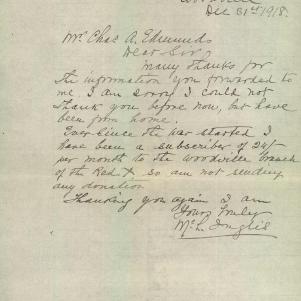 Woodville
Dec 31st 1918.
Mr Chas A. Edmunds
Dear Sir,
Many thanks for
the information you forwarded to
me. I am sorry I could not
thank you before now, but have
been from home.
Ever since the war started I
have been a subscriber of 24/-
per month to the Woodville branch
of the Red X, so am not sending
any donation
Thanking you again I am
Yours truly
Mc L. Inglis